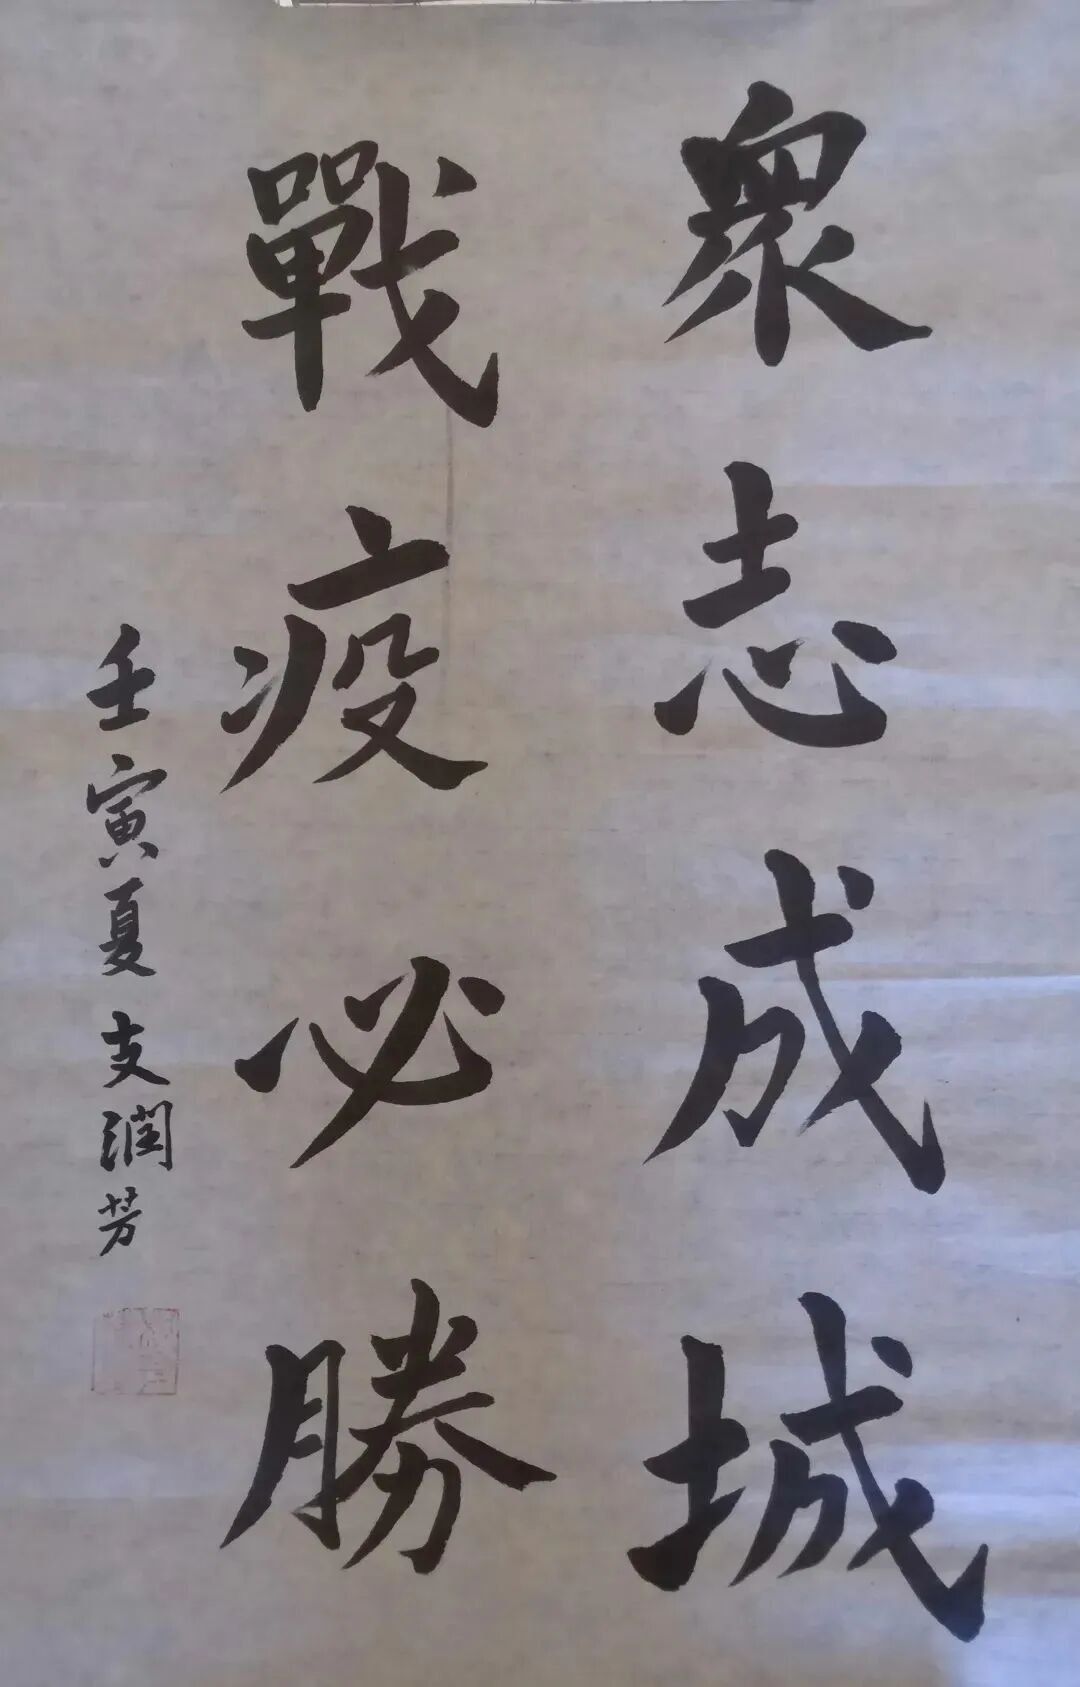 眾志成城
戰疫必勝
壬寅夏支潤芳